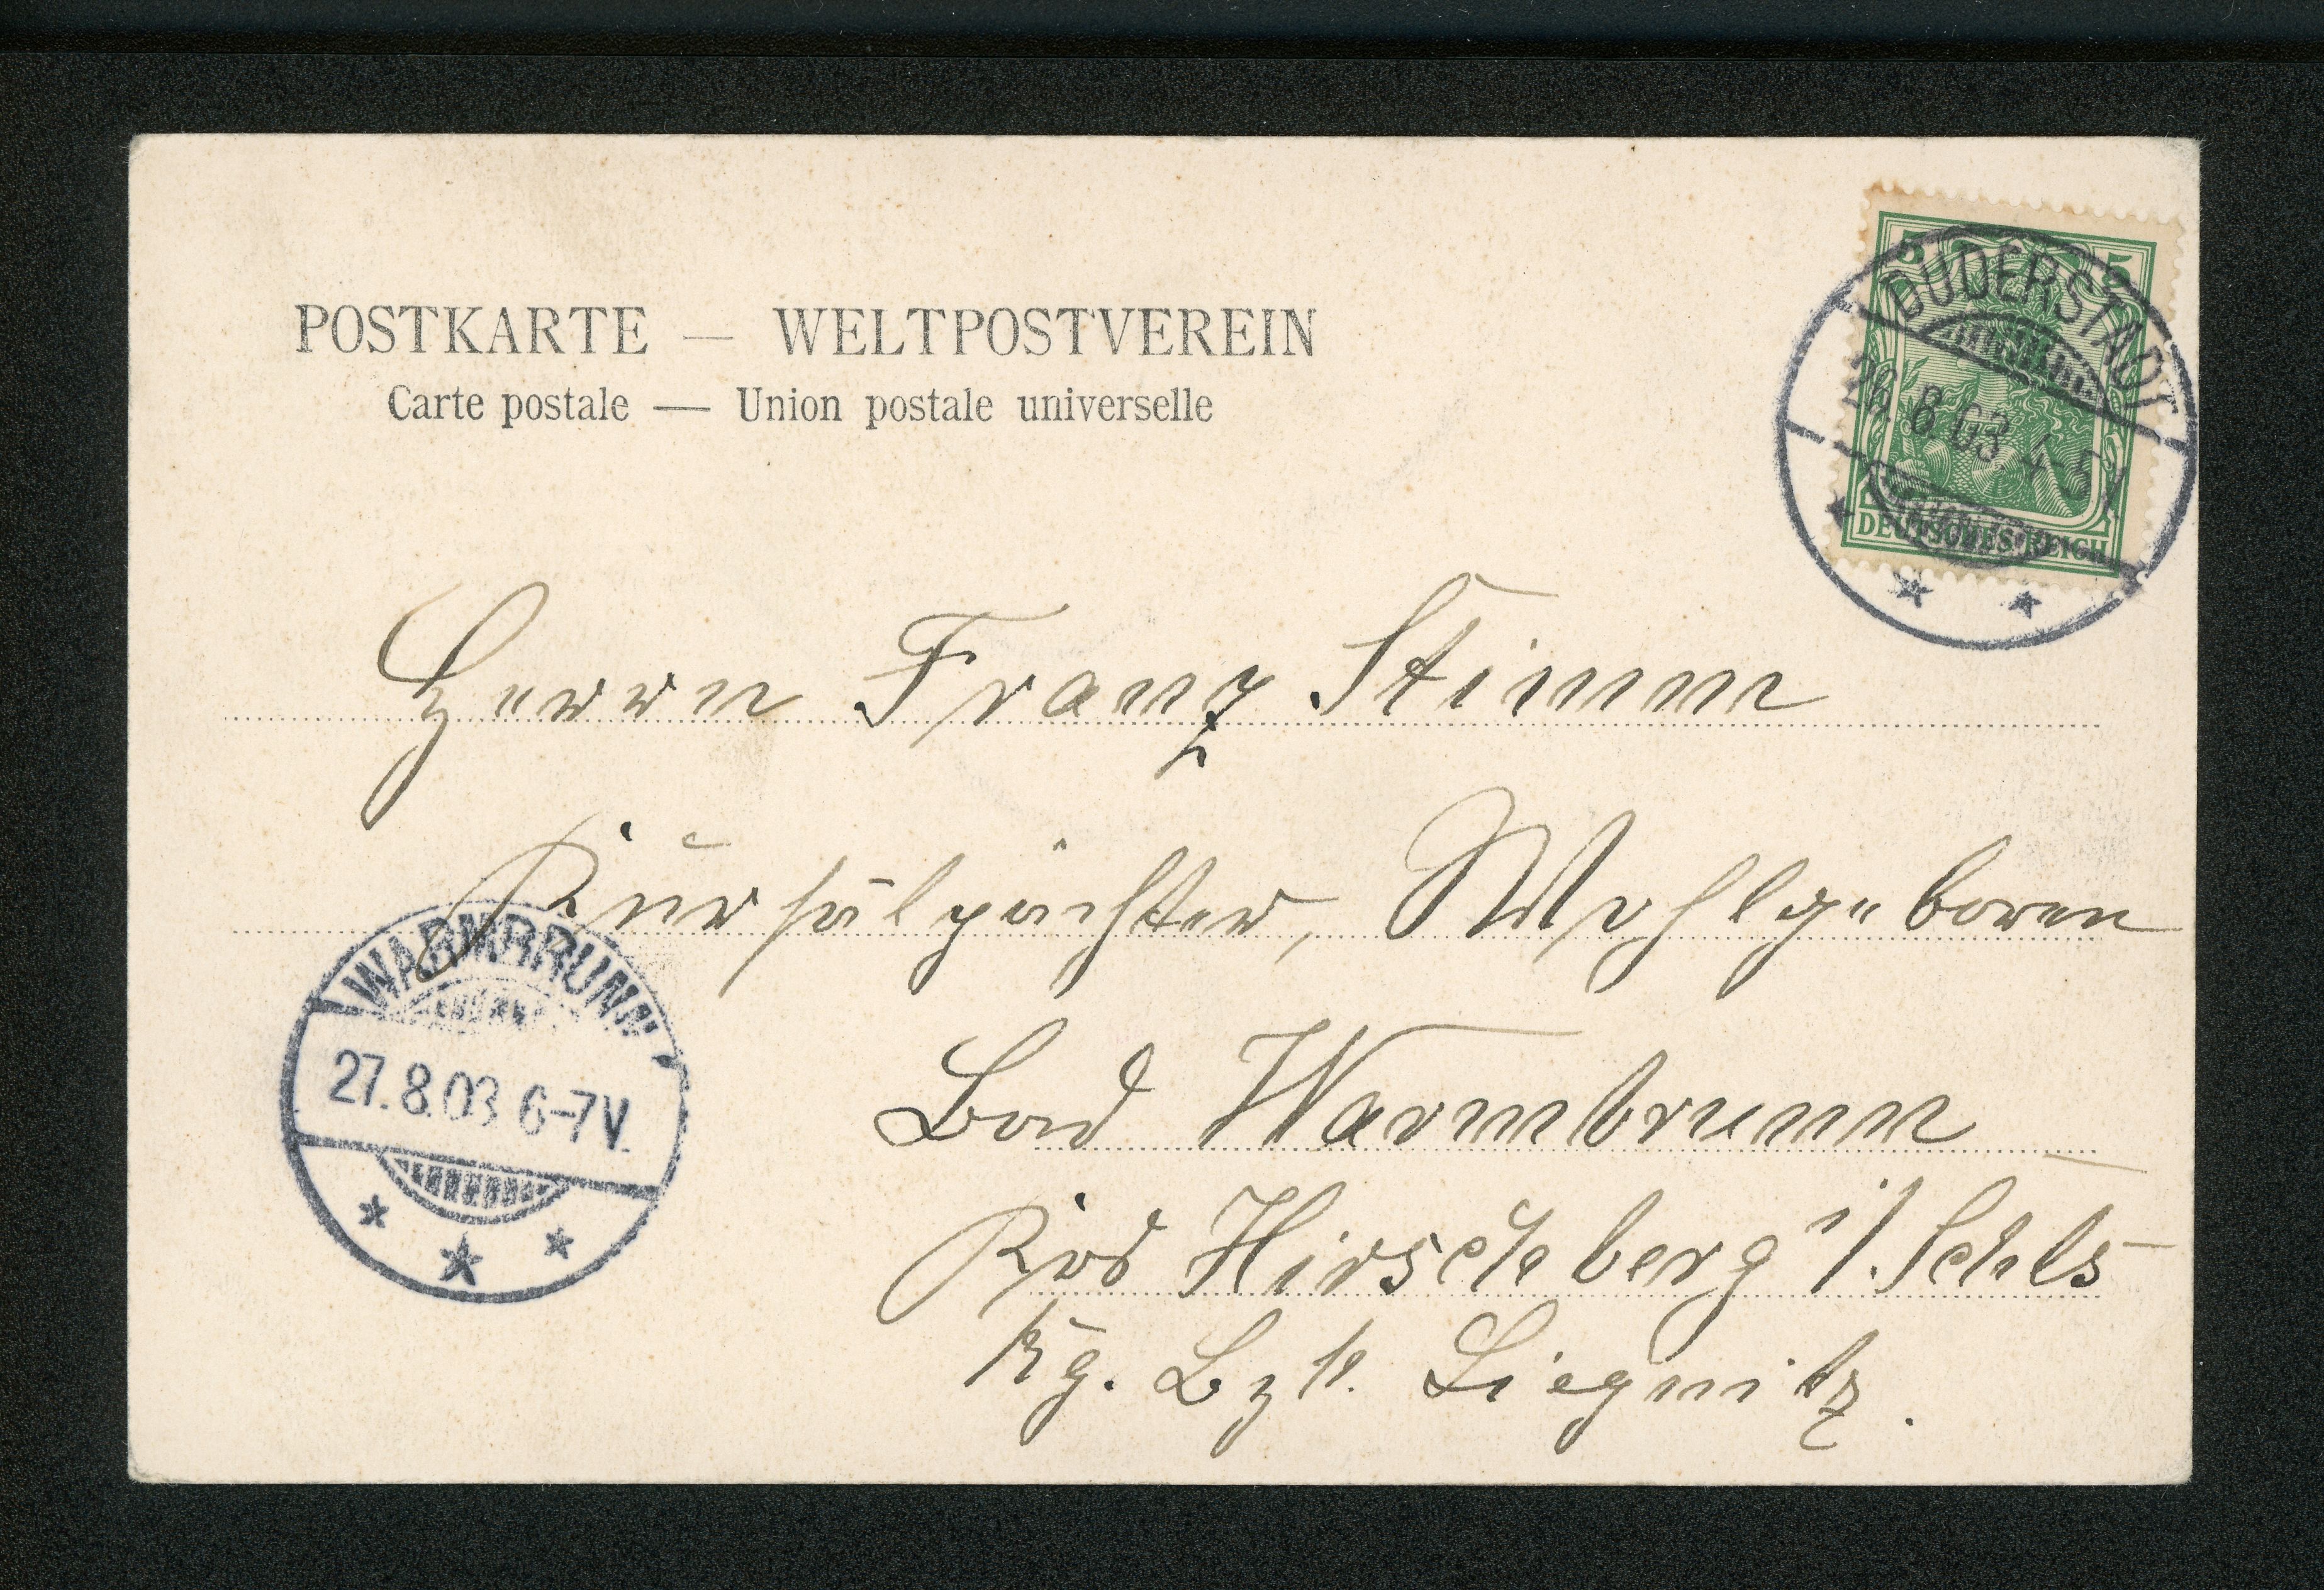 POSTKARTE — WELTPOSTVEREIN
Carte postale — Union postale universelle
5 5
DUDERSTADT
26.8.03 4-5
DEUTSCHES REICH
Herrn Franz Stimm
Kursalpächter, Wohlgeboren
WARMBRUNN
27.8.03 6-7V.
Bad Warmbrunn
Hirschberg i/Schls
Kg. Bzk. Liegnitz.